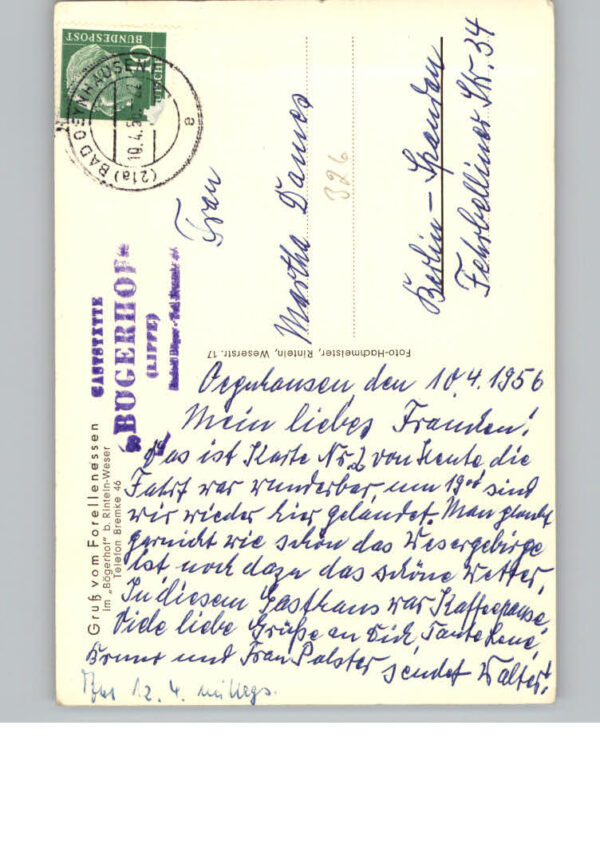 DEUTSCHE
BUNDESPOST
10
(21a) BAD OEYNHAUSEN
10.4.56
a
Frau
Martha Damos
Berlin-Spandau
Fehrbelliner Str. 34
326
GASTSTÄTTE
BÖGERHOF
(LIPPE)
Gruß vom Forellenessen
im „Bögerhof" b. Rinteln-Weser
Telefon Bremke 46
Foto-Hachmeister, Rinteln, Weserstr. 17
Oeynhausen, den 10.4.1956
Mein liebes Frauchen!
Das ist Karte Nr 2 von Heute, die
Fahrt war wunderbar, um 19 sind
wir wieder hier gelandet. Man glaubt
garnicht wie schön das Wesergebirge
ist noch dazu das schöne Wetter,
In diesem Gasthaus war Kaffeepause
Viele liebe Grüße an Dich, Tante Lene,
Bruno und Frau Palster sendet Walter!
12. 4. mittags.